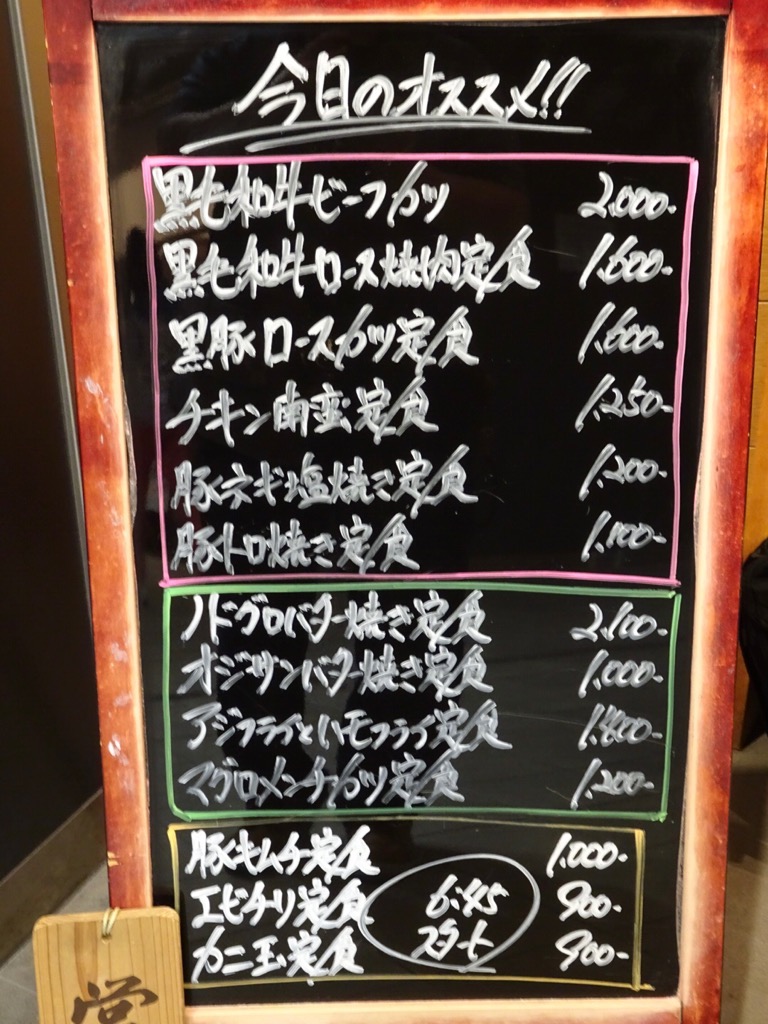 今日のオススメ!!
黒毛和牛ビーフカツ 2,000-
黒毛和牛ロース焼肉定食 1,600-
黒豚ロースカツ定食 1,600-
チキン南蛮定食 1,250-
豚ネギ塩焼き定食 1,200-
豚トロ焼き定食 1,100-
ノドグロバター焼き定食 2,100-
オジサンバター焼き定食 1,000-
アジフライとハモフライ定食 1,400-
マグロメンチカツ定食 1,200-
豚キムチ定食 1,000-
エビチリ定食 900-
カニ玉定食 900-
6:45
スタート
営